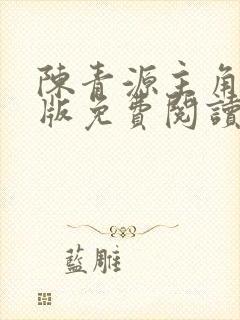 陳青源主角
版免費閱讀
藍雕